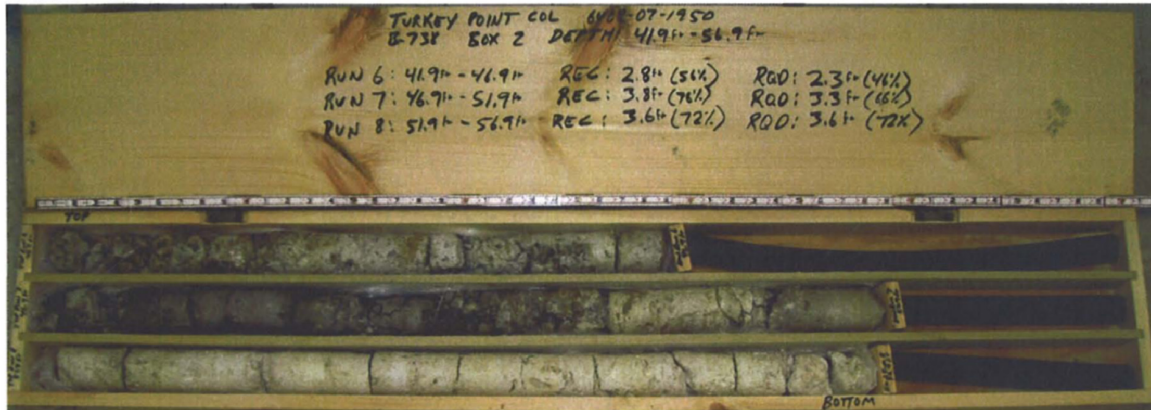 TURKEY POINT COL 6468-07-1950
B-738 BOX 2 DEPTH: 41.9ft - 56.9ft
RUN 6: 41.9ft - 46.9ft REC: 2.8ft (56%) RQD: 2.3ft (46%)
RUN 7: 46.9ft - 51.9ft REC: 3.8ft (76%) RQD: 3.3ft (66%)
RUN 8: 51.9ft - 56.9ft REC: 3.6ft (72%) RQD: 3.6ft (72%)
TOP
BOTTOM